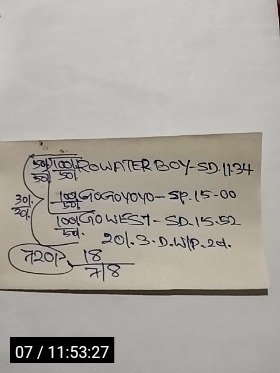 50/- 100/- ROWATER BOY-SD.11.34
50 50/-
100/- GOGOYOYO-SP.15-00
30/- 50/-
20/- 100/- GO WEST-SD.15.52
50/-
20/. 3.D.W/P.2d.
720/- 18
7/8
07 / 11:53:27